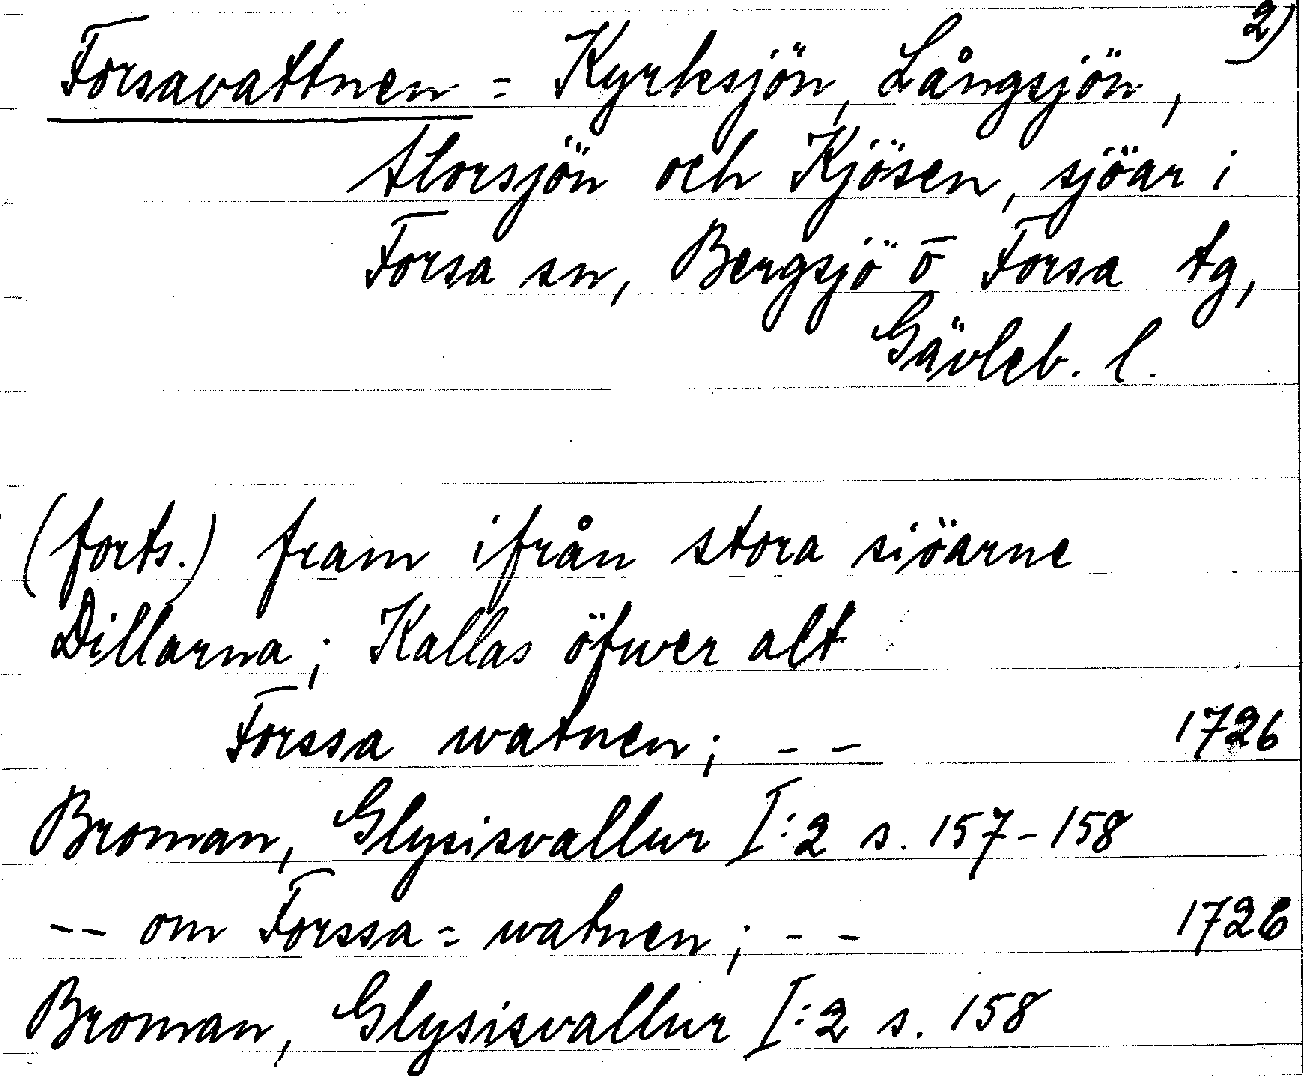 2)
Forsavattnen = Kyrksjön, Långsjön,
Storsjön och Kjösen, sjöar i
Forsa sn, Bergsjö o Forsa tg,
Gävleb. l.
(forts.) fram ifrån stora siöarne
Dillarna; Kallas öfwer alt
Forssa watnen; - - 1726
Broman, Glysisvallur I:2 s. 157-158
-- om Forssa = watnen; - - 1726
Broman, Glysisvallur I:2 s. 158